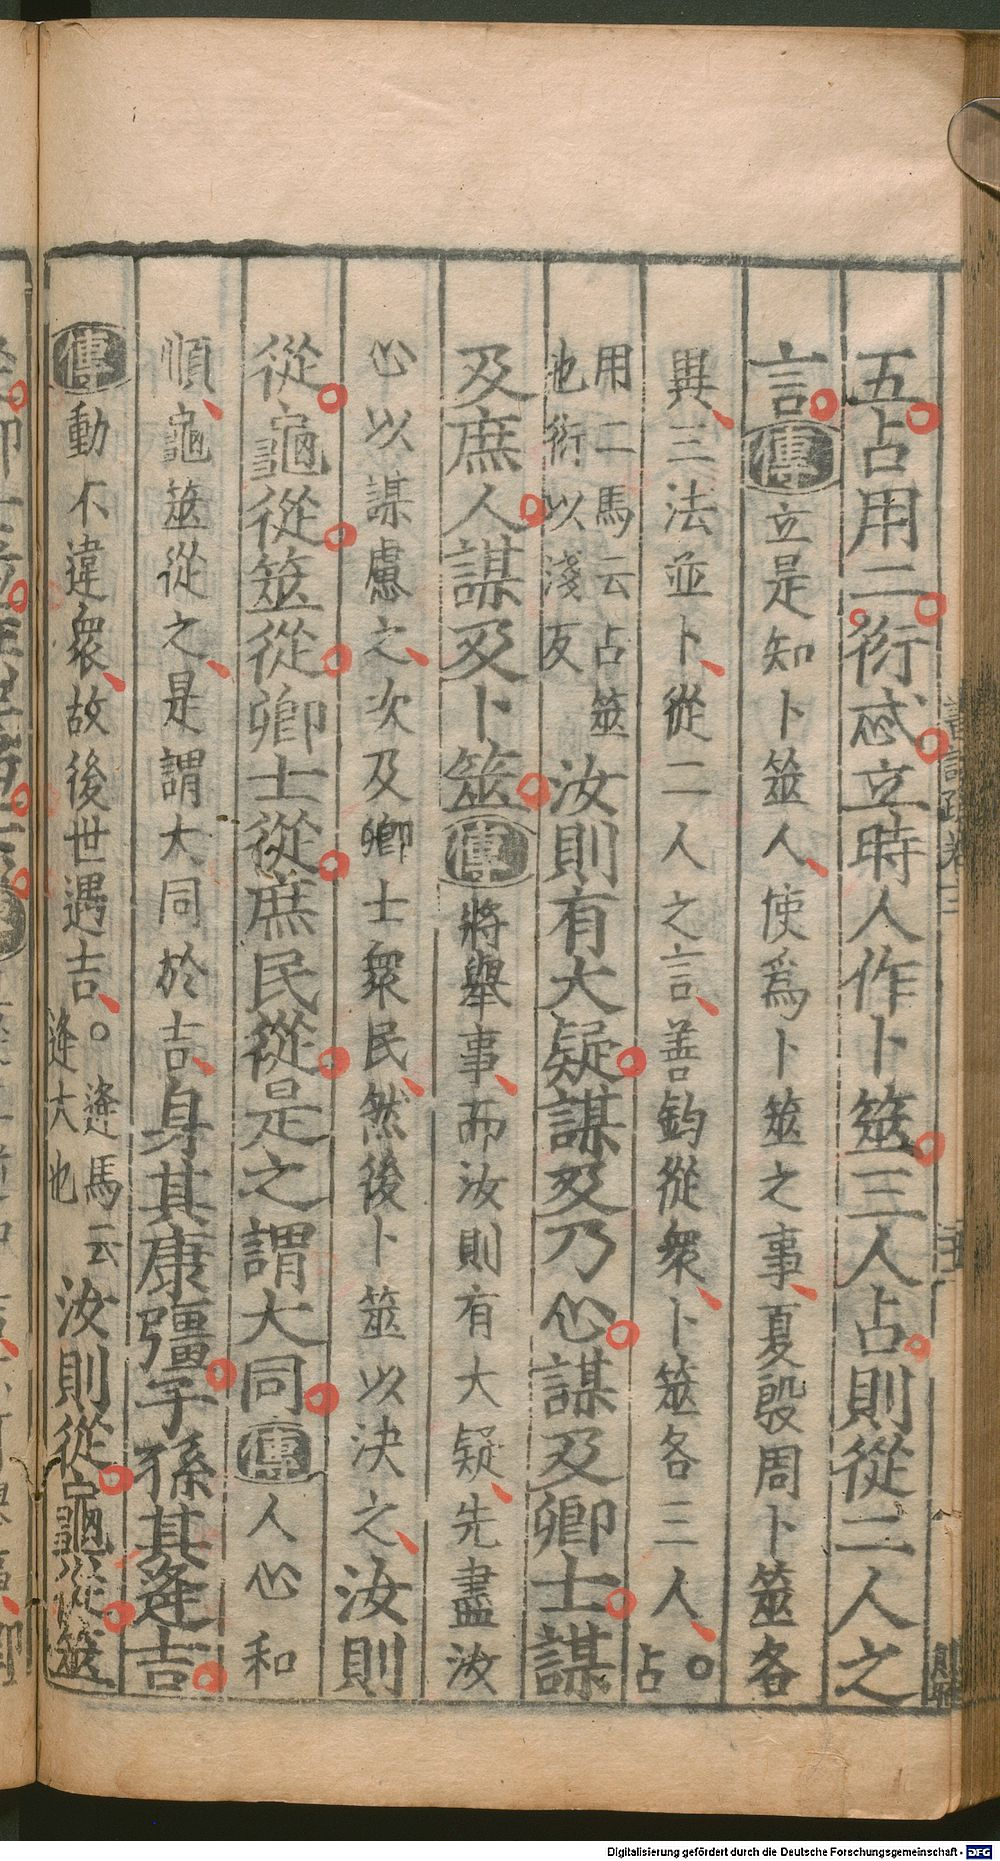 五占用二衍忒立時人作卜筮三人占則從二人之
言傳立是知卜筮人使爲卜筮之事夏殷周卜筮各
異三法並卜從二人之言善鈞從衆卜筮各三人○占
用二馬云占筮
也衍以淺反
汝則有大疑謀及乃心謀及卿士謀
及庶人謀及卜筮傳將舉事而汝則有大疑先盡汝
心以謀慮之次及卿士衆民然後卜筮以決之汝則
從龜從筮從卿士從庶民從是之謂大同傳人心和
順龜筮從之是謂大同於吉身其康彊子孫其逢吉
傳動不違衆故後世遇吉○逢馬云
逢大也
汝則從龜從筮
Digitalisierung gefördert durch die Deutsche Forschungsgemeinschaft - DFG